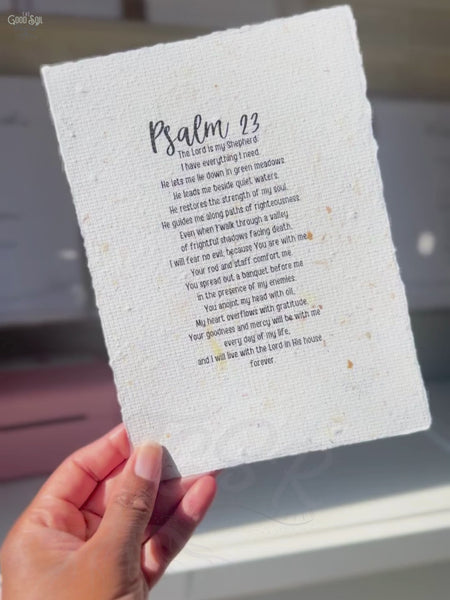 GOOD SOIL
Psalm 23
The Lord is my Shepherd.
I have everything I need.
He lets me lie down in green meadows.
He leads me beside quiet waters.
He restores the strength of my soul.
He guides me along paths of righteousness.
Even when I walk through a valley
of frightful shadows facing death,
I will fear no evil, because You are with me.
Your rod and staff comfort me.
You spread out a banquet before me
in the presence of my enemies.
You anoint my head with oil.
My heart overflows with gratitude.
Your goodness and mercy will be with me
every day of my life,
and I will live with the Lord in His house
forever.